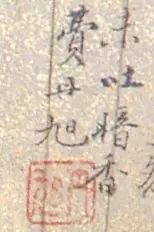 未吐暗香
費丹旭